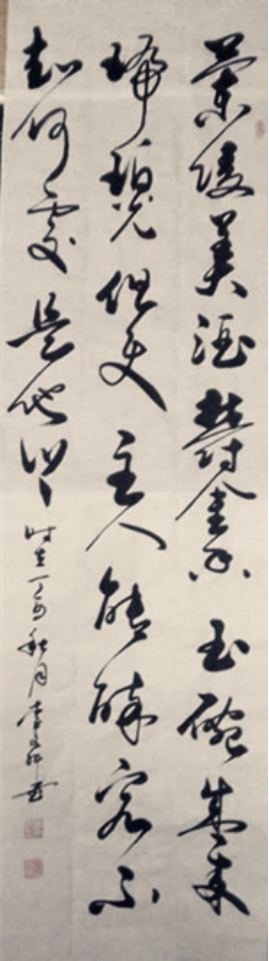 蘭陵美酒鬱金香玉碗盛来
琥珀光但使主人能醉客不
知何處是他鄉時在丁酉秋月李書